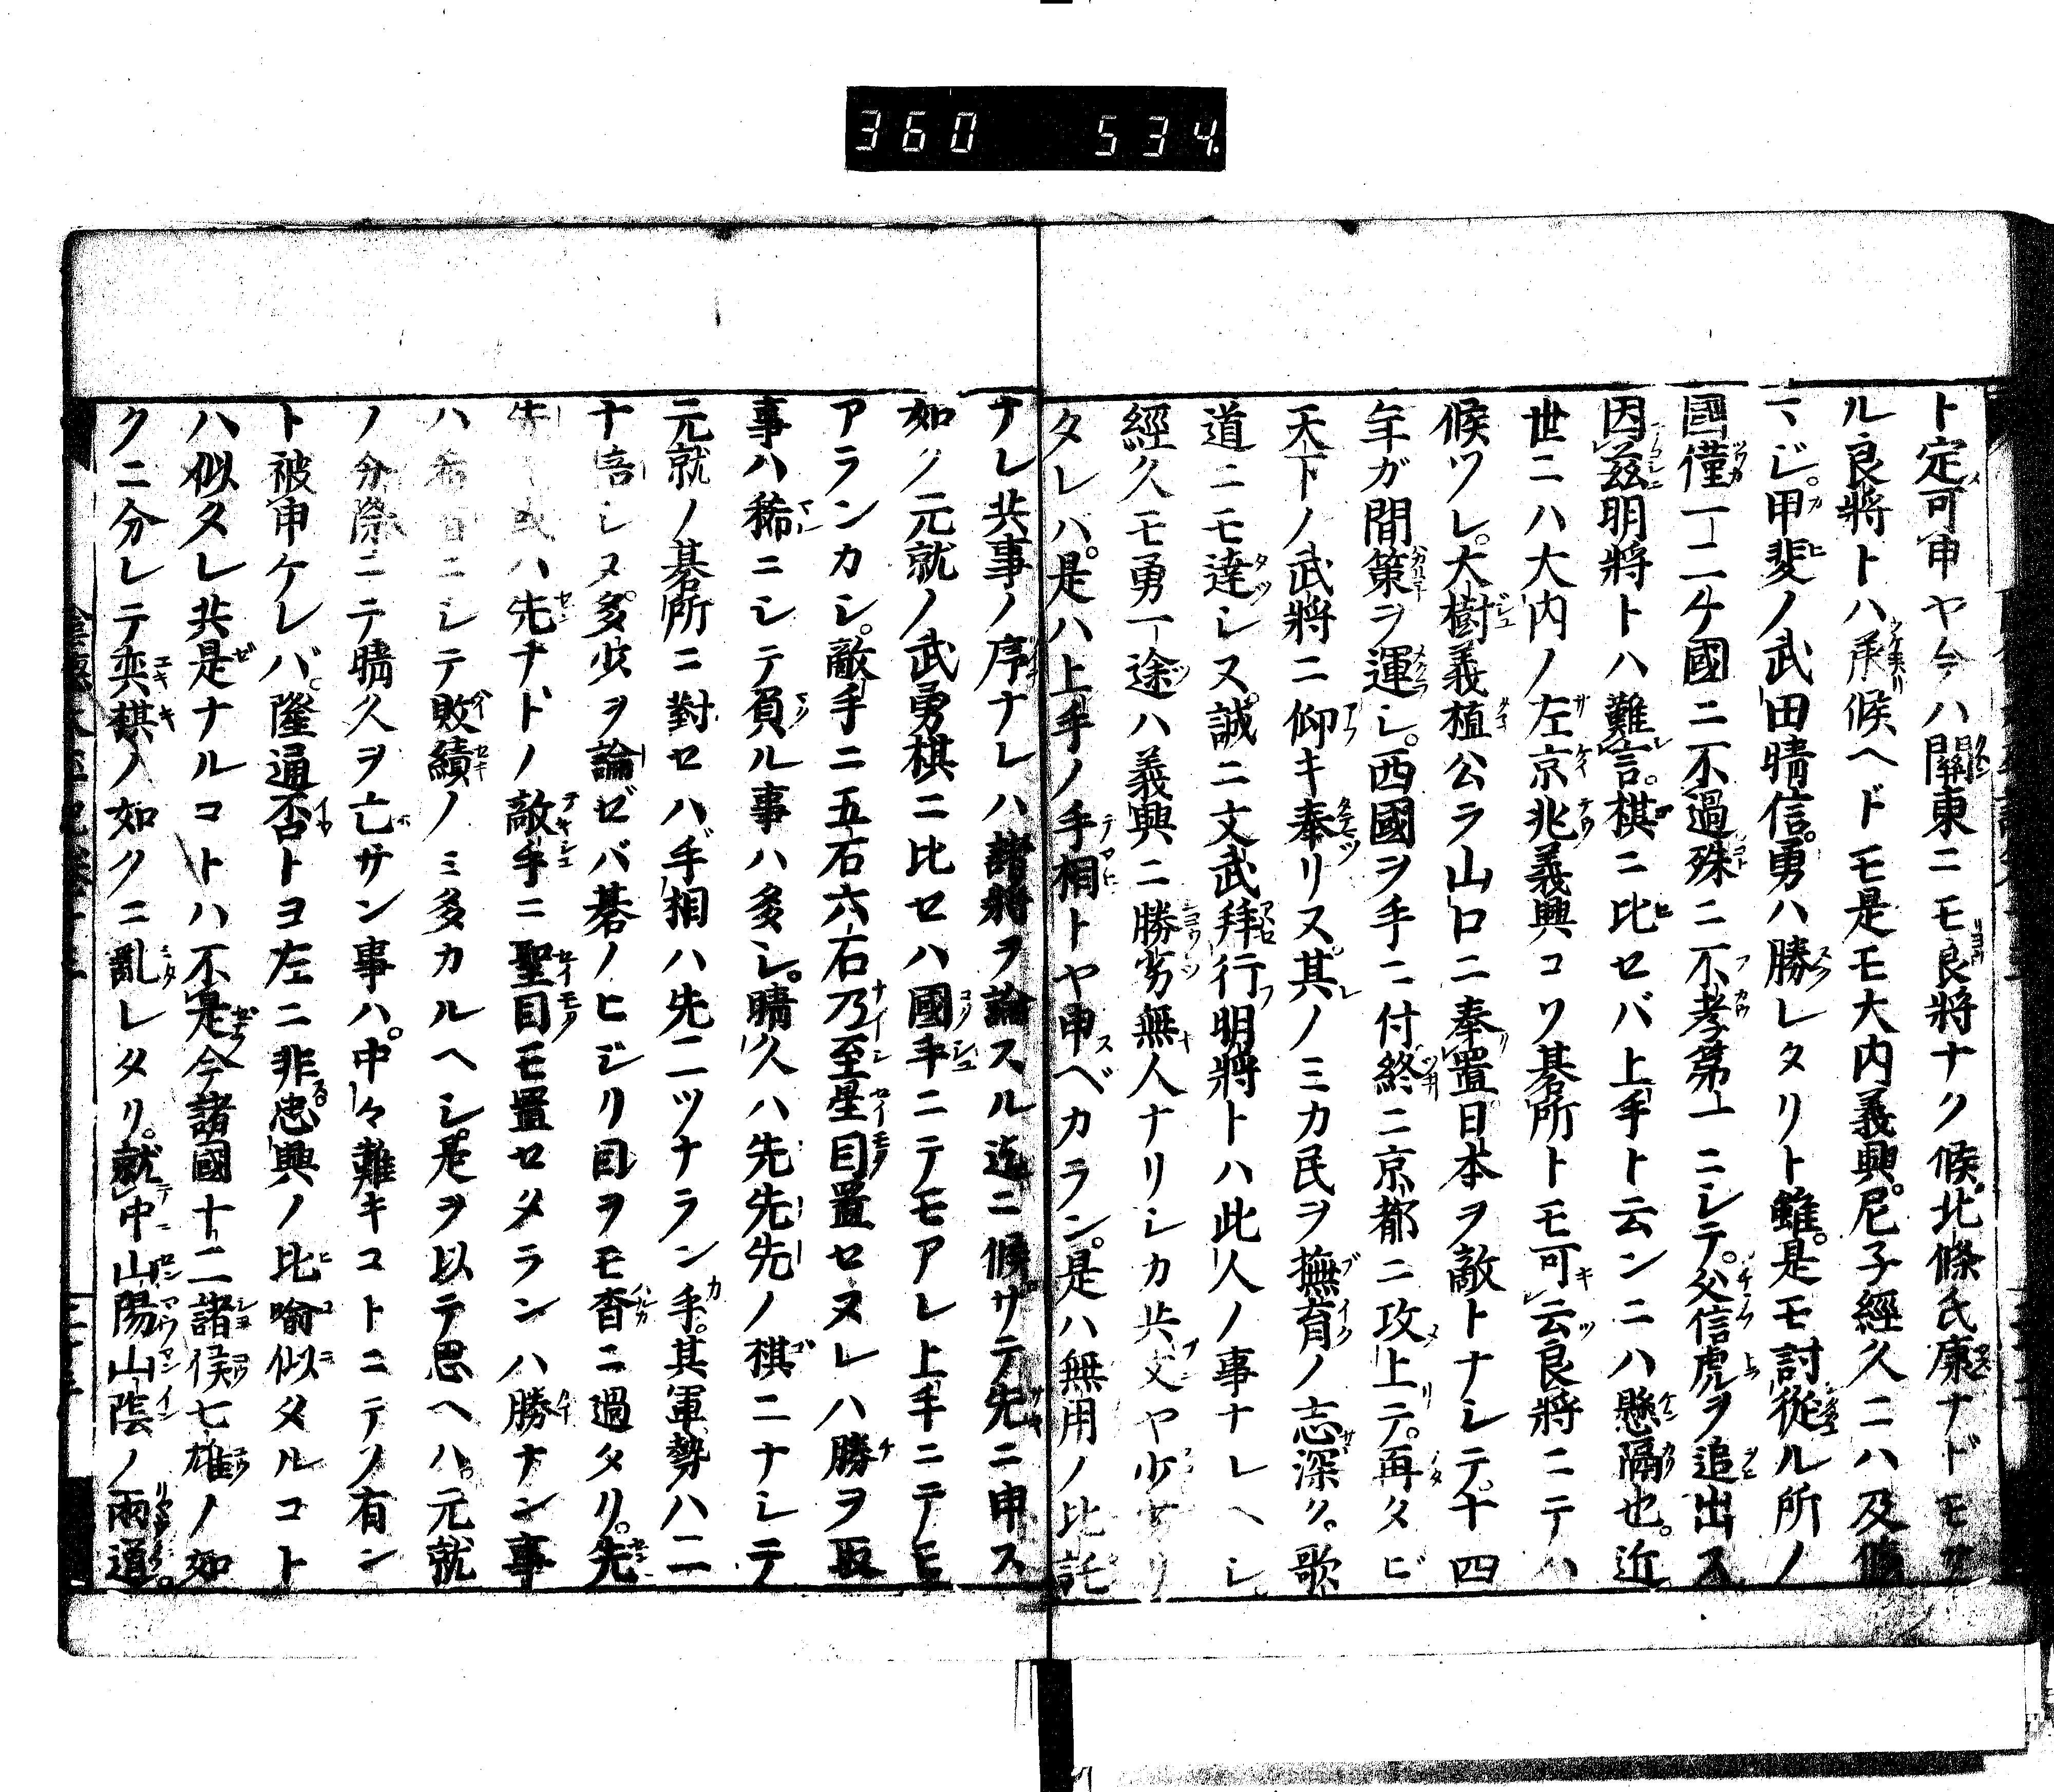 360 534
ト定可申ヤ今ハ關東ニモ良將ナク候北條氏康ナドモサ
ル良將トハ承候ヘドモ是モ大内義興尼子經久ニハ及
ジ甲斐ノ武田晴信勇ハ勝レタリト雖是モ討從ル所ノ
國僅一二ケ國ニ不過殊ニ不孝第一ニシテ父信虎ヲ追出ス
因茲明將トハ難言棋ニ比セバ上手ト云ンニハ懸隔也近
世ニハ大内ノ左京兆義興コソ碁所トモ可云良將ニテハ
候ツレ大樹義植公ヲ山口ニ奉置日本ヲ敵トナシテ十四
年ガ間策ヲ運シ西國ヲ手ニ付終ニ京都ニ攻上テ再タビ
天下ノ武將ニ仰キ奉リヌ其ノミカ民ヲ撫育ノ志深ク歌
道ニモ達シヌ誠ニ文武拜行明將トハ此人ノ事ナレヘシ
經久モ勇一途ハ義興ニ勝劣無人ナリシカ共文ヤ少
タレバ是ハ上手ノ手相トヤ申ベカラン是ハ無用ノ比託
ナレ共事ノ序ナレハ諸將ヲ論スル迄ニ候サテ先ニ申ス
如ク元就ノ武勇棋ニ比セハ國手ニテモアレ上手ニテモ
アランカシ敵手ニ五石六石乃至星目置セヌレハ勝ヲ取
事ハ稀ニシテ負ル事ハ多シ晴久ハ先先先ノ棋ニナシテ
元就ノ碁所ニ對セハ手相ハ先二ツナラン手其軍勢ハ二
十倍シヌ多少ヲ論ゼバ碁ノヒジリ目ヲモ杳ニ過タリ先
先或ハ先ナドノ敵手ニ聖目モ置セタランハ勝ナン事
ハ希有ニシテ敗績ノミ多カルヘシ是ヲ以テ思ヘハ元就
ノ分際ニテ晴久ヲ亡サン事ハ中々難キコトニテソ有ン
ト被申ケレバ隆通否トヨ左ニ非忠興ノ比喩似タルコト
ハ似タレ共是ナルコトハ不是今諸國十二諸侯七雄ノ如
クニ分レテ奕棋ノ如クニ亂レタリ就中山陽山陰ノ兩道